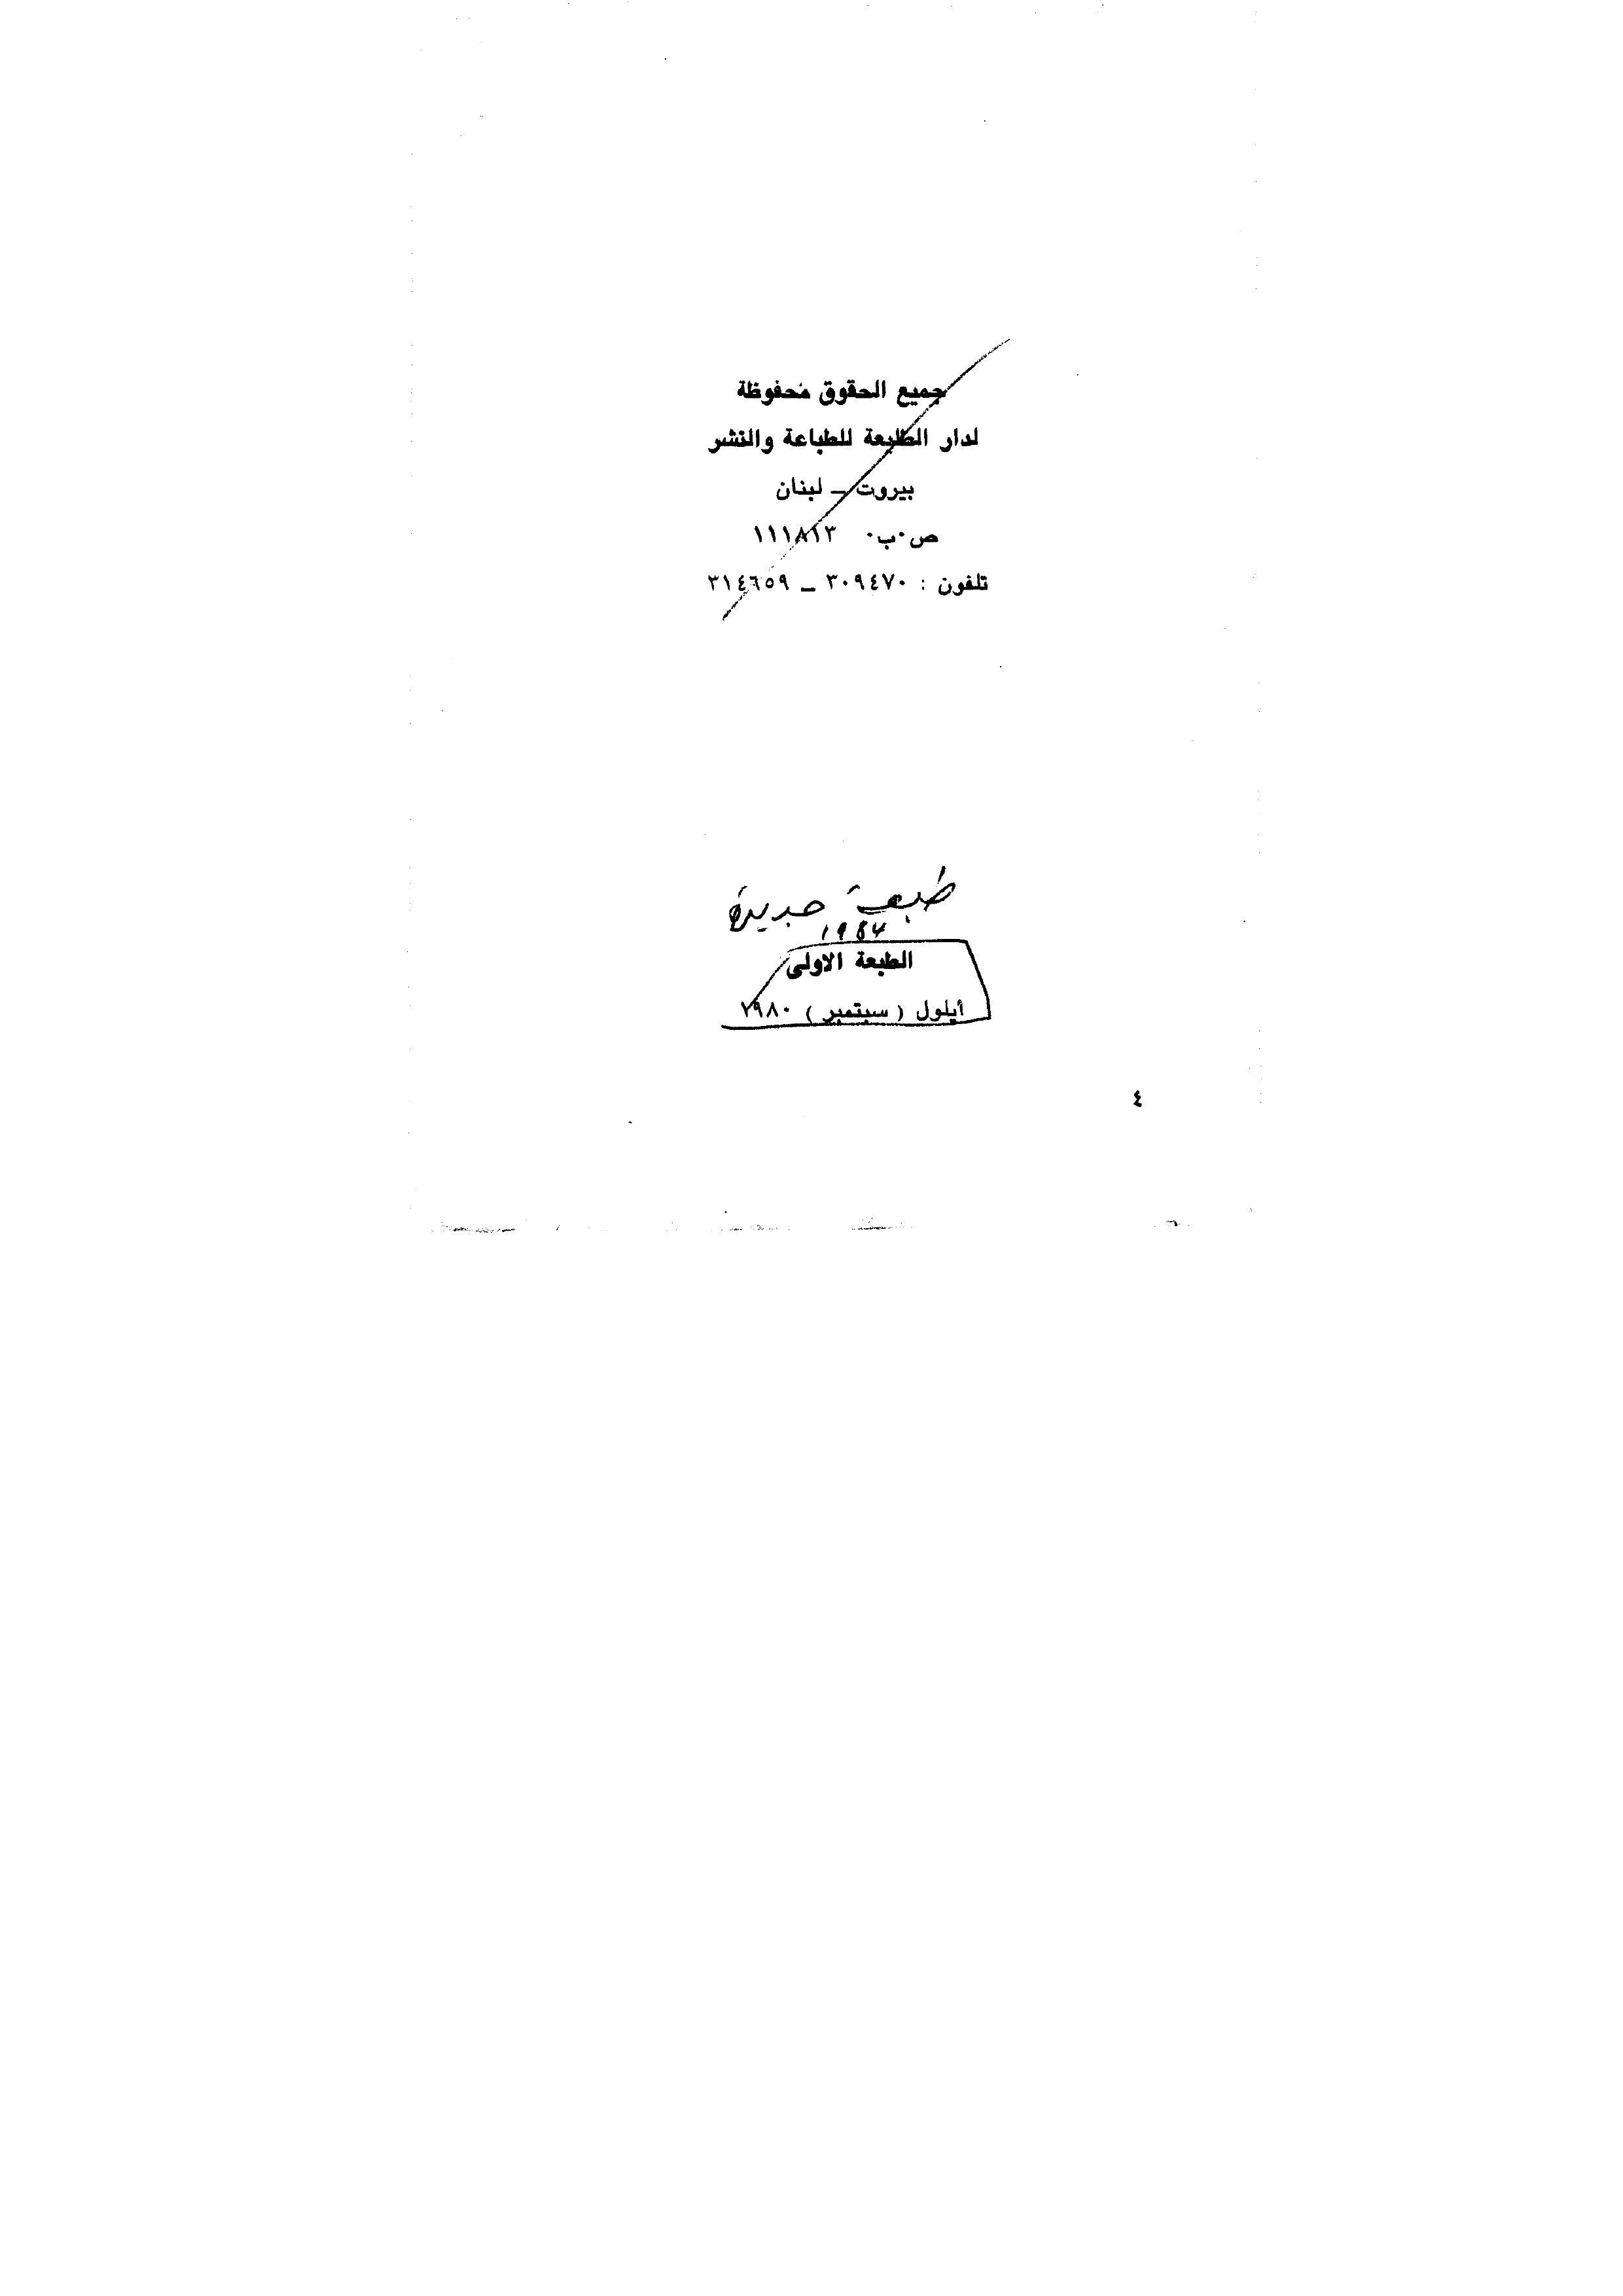 جميع الحقوق محفوظة
لدار الطليعة للطباعة والنشر
بيروت ـ لبنان
ص.ب. ١١١٨١٣
تلفون : ٣٠٩٤٧٠ ـ ٣١٤٦٥٩
طبعة جديدة
الطبعة الاولى
أيلول ( سبتمبر ) ١٩٨٠
٤